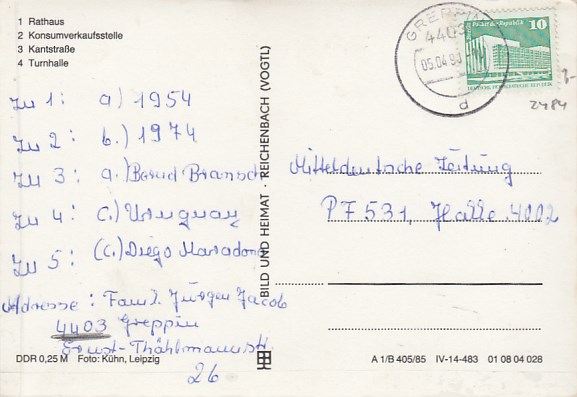 1 Rathaus
2 Konsumverkaufsstelle
3 Kantstraße
4 Turnhalle
GREPPIN
4403
05.04.90
d
10
2484
zu 1: a) 1954
zu 2: b.) 1974
zu 3: a.) Bernd Bransch
zu 4: c.) Uruguay
zu 5: (c.) Diego Maradona
Adresse: Fam. Jürgen Jacob
4403 Greppin
Ernst-Thählmannstr
26
BILD UND HEIMAT · REICHENBACH (VOGTL)
Mitteldeutsche Zeitung
PF 531, Halle 4002
DDR 0,25 M Foto: Kühn, Leipzig
A 1/B 405/85 IV-14-483 01 08 04 028